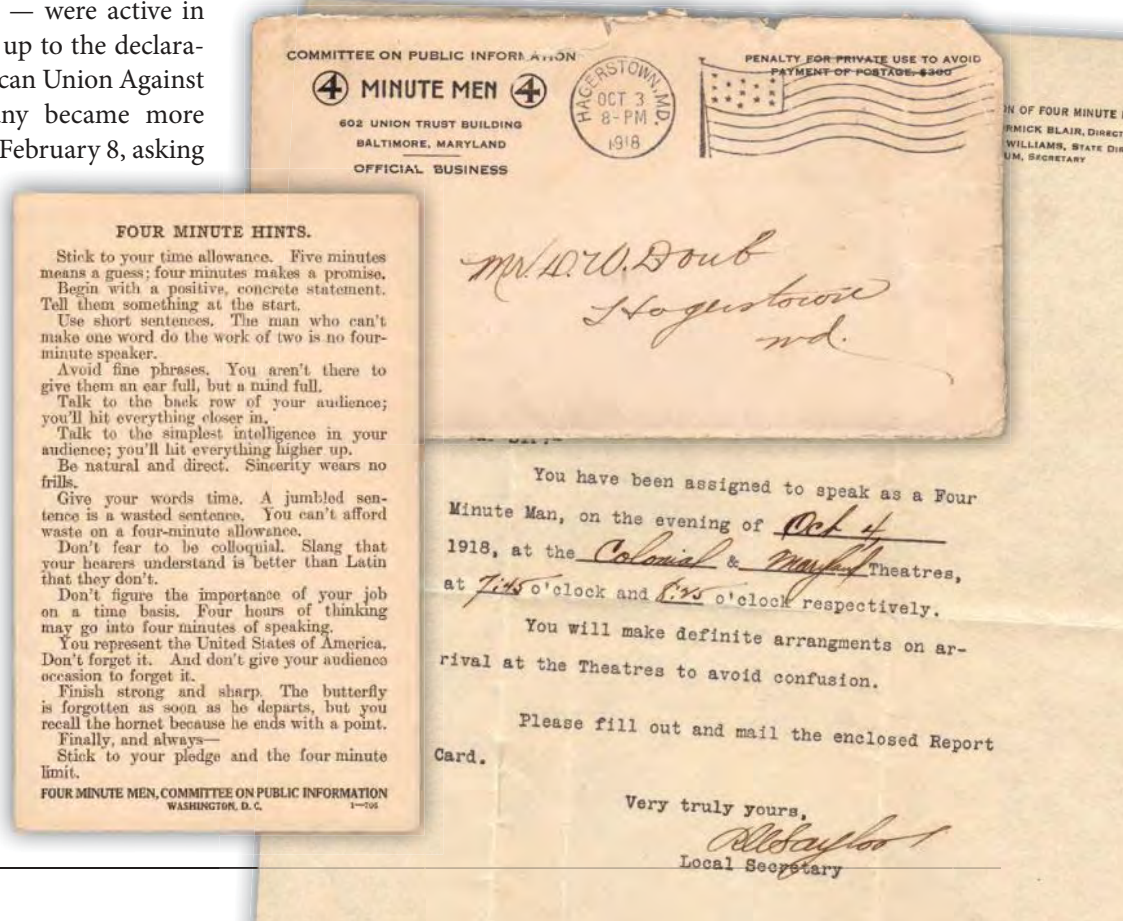 — were active in
up to the declara-
can Union Against
any became more
February 8, asking
COMMITTEE ON PUBLIC INFORMATION
4 MINUTE MEN 4
602 UNION TRUST BUILDING
BALTIMORE, MARYLAND
OFFICIAL BUSINESS
HAGERSTOWN, MD.
OCT 3
8-PM
1918
PENALTY FOR PRIVATE USE TO AVOID
PAYMENT OF POSTAGE, $300
Mr. D. W. Doub
Hagerstown
Md.
ON OF FOUR MINUTE
RMICK BLAIR, DIRECT
WILLIAMS, STATE DIR
UM, SECRETARY
FOUR MINUTE HINTS.
Stick to your time allowance. Five minutes
means a guess; four minutes makes a promise.
Begin with a positive, concrete statement.
Tell them something at the start.
Use short sentences. The man who can't
make one word do the work of two is no four-
minute speaker.
Avoid fine phrases. You aren't there to
give them an ear full, but a mind full.
Talk to the back row of your audience;
you'll hit everything closer in.
Talk to the simplest intelligence in your
audience; you'll hit everything higher up.
Be natural and direct. Sincerity wears no
frills.
Give your words time. A jumbled sen-
tence is a wasted sentence. You can't afford
waste on a four-minute allowance.
Don't fear to be colloquial. Slang that
your hearers understand is better than Latin
that they don't.
Don't figure the importance of your job
on a time basis. Four hours of thinking
may go into four minutes of speaking.
You represent the United States of America.
Don't forget it. And don't give your audience
occasion to forget it.
Finish strong and sharp. The butterfly
is forgotten as soon as he departs, but you
recall the hornet because he ends with a point.
Finally, and always—
Stick to your pledge and the four minute
limit.
FOUR MINUTE MEN, COMMITTEE ON PUBLIC INFORMATION
WASHINGTON, D. C.
You have been assigned to speak as a Four
Minute Man, on the evening of Oct 4,
1918, at the Colonial & Maryland Theatres,
at 7:45 o'clock and 8:25 o'clock respectively.
You will make definite arrangments on ar-
rival at the Theatres to avoid confusion.
Please fill out and mail the enclosed Report
Card.
Very truly yours,
Local Secretary